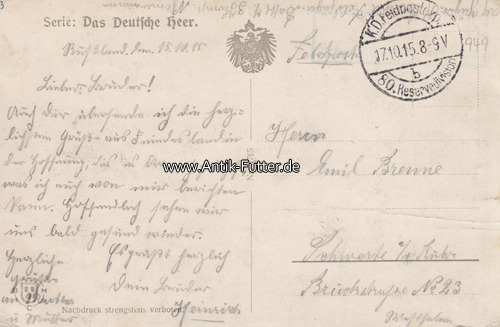 Serie: Das Deutsche Heer.
Feldpost
K.D. Feldpostexp.
17.10.15.8-9V
b
80. Reservedivision
Rußland, den 15.10.15
Lieber Bruder!
Auch Dir übersende ich die herz-
lichsten Grüße aus Feindesland in
der Hoffnung, das es Dir
was ich auch von mir berichten
kann. Hoffendlich sehen wir
uns bald gesund wieder.
Herzliche
Grüße
an
u. Mutter
Es grüßt herzlich
Dein Bruder
Heinrich
Nachdruck strengstens verboten
Herrn
Emil Brenne
Schwerte a/d. Ruhr
Brückstraße No 23
Westfalen
www.Antik-Futter.de